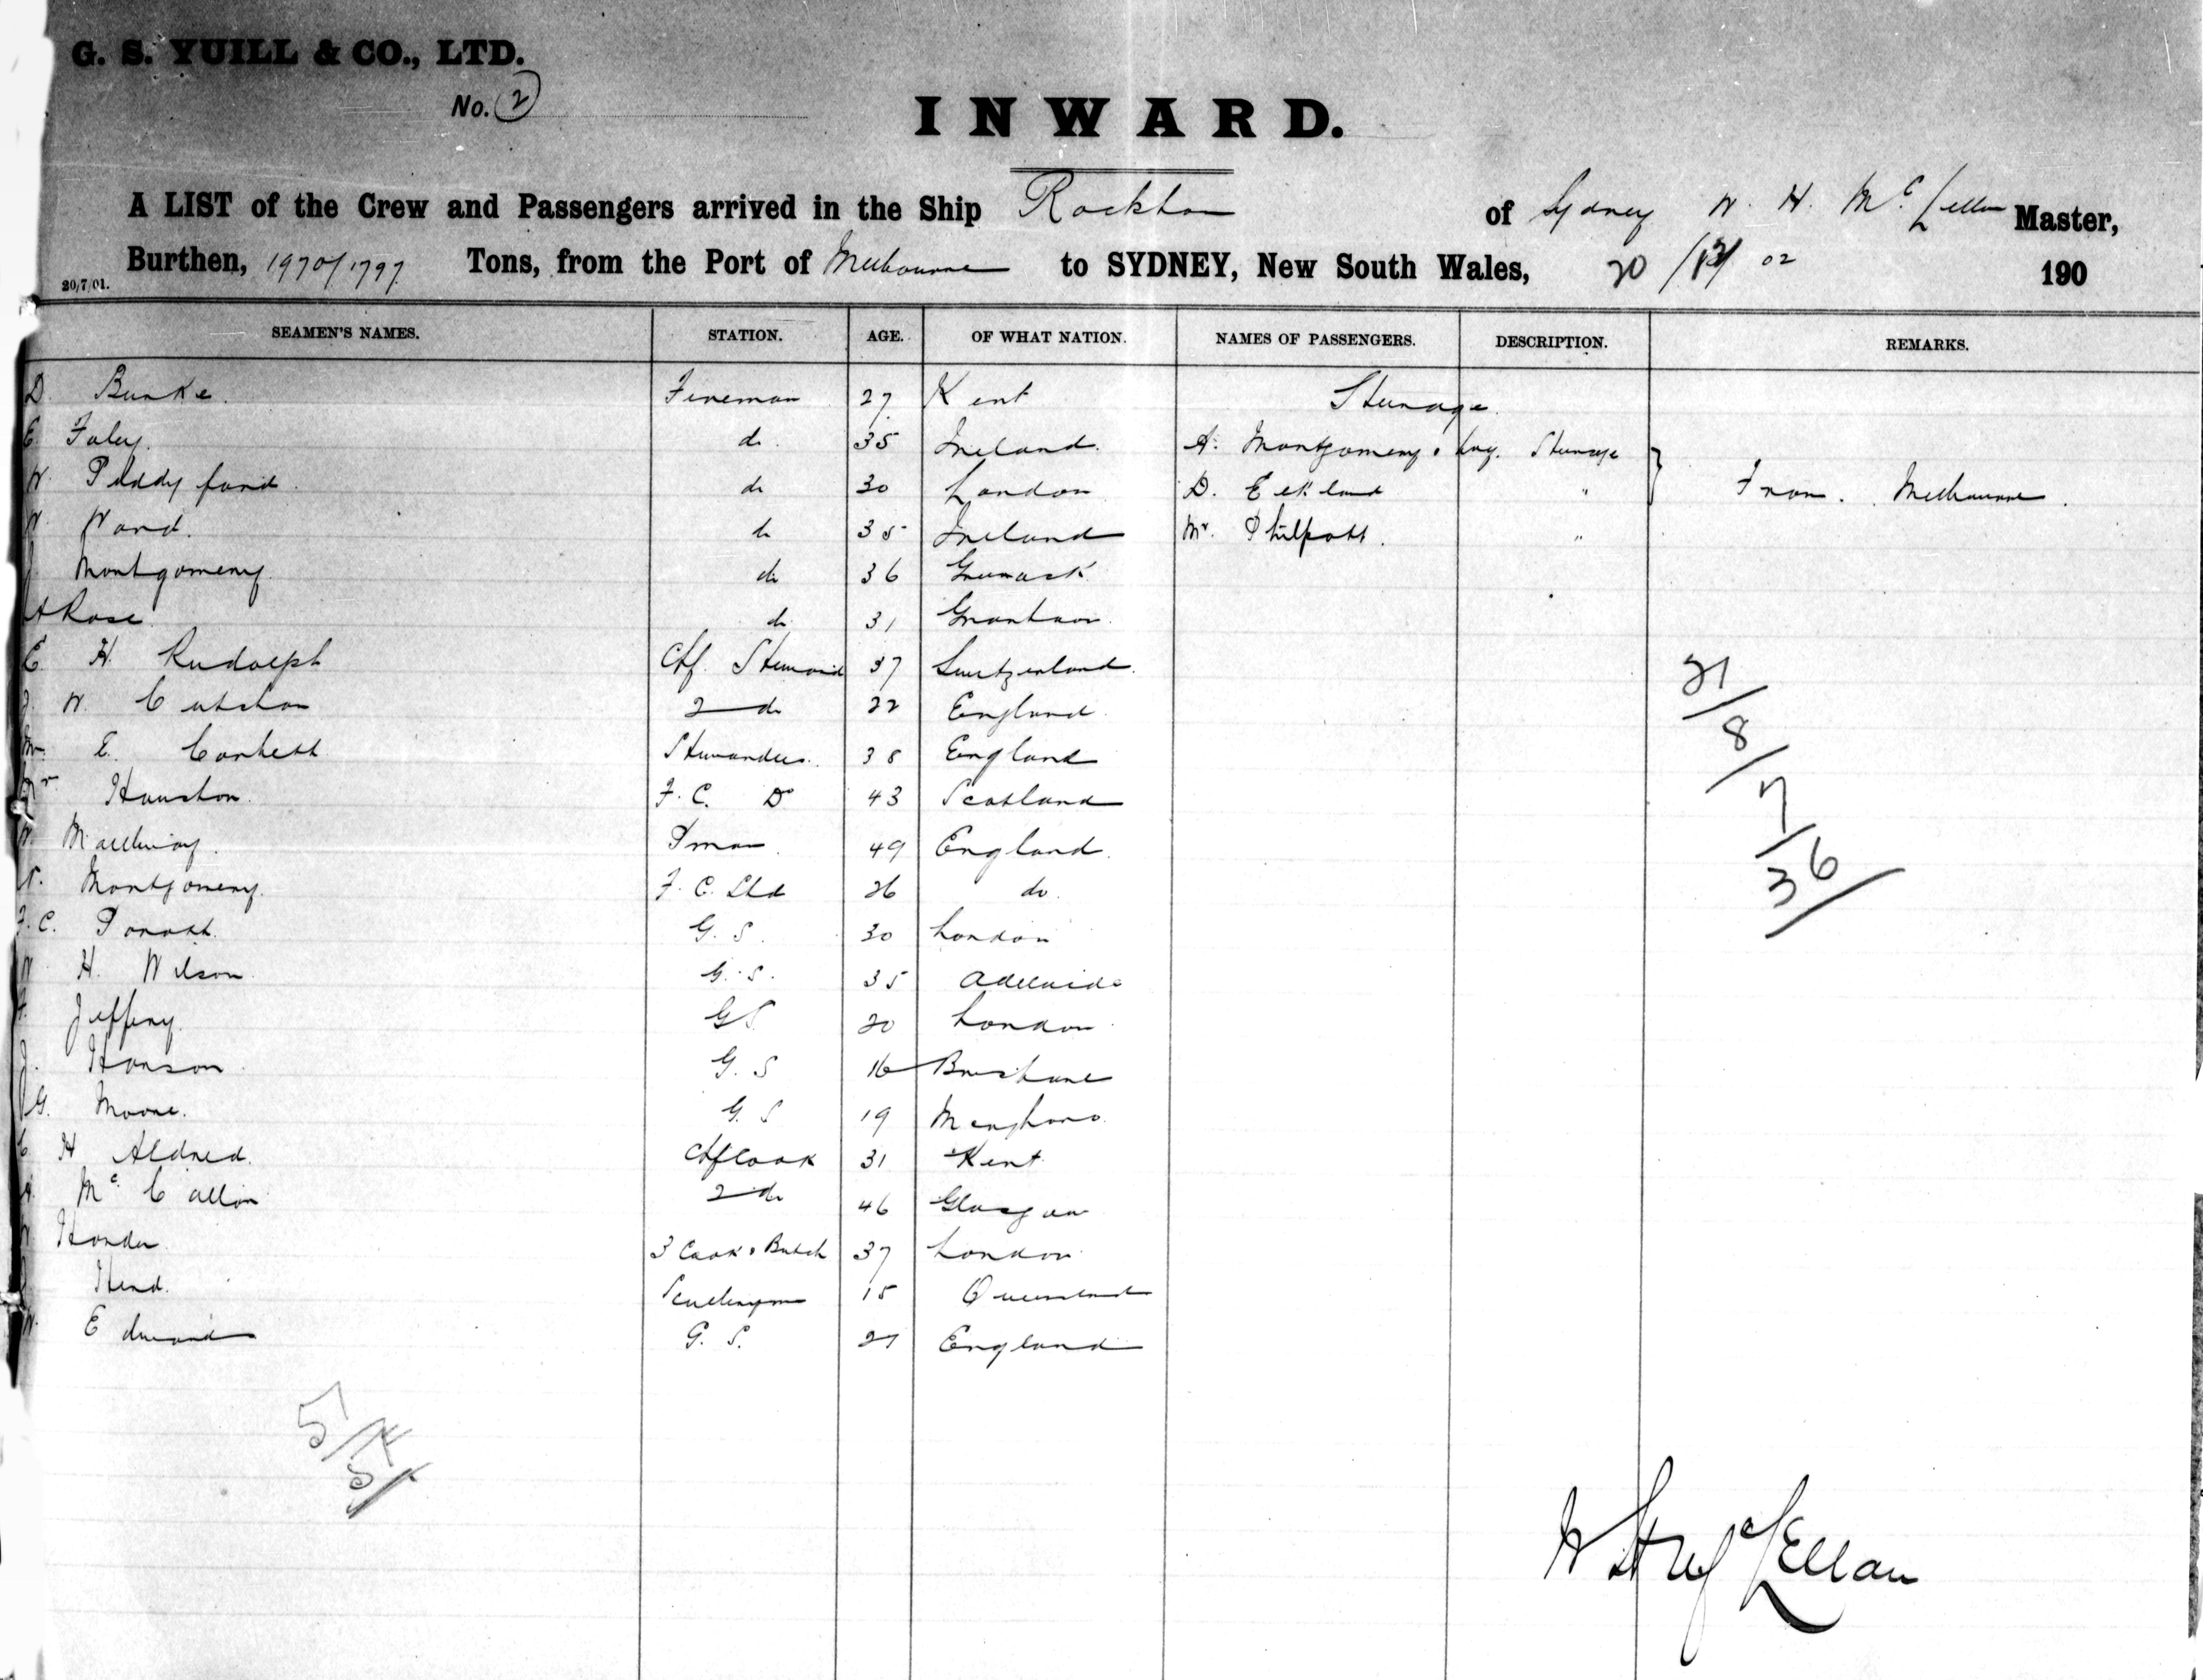 G. S. YUILL & CO., LTD.
No. 2
INWARD.
A LIST of the Crew and Passengers arrived in the Ship Rockton of Sydney W. H. McLellan Master,
Burthen, 1970/1797 Tons, from the Port of Melbourne to SYDNEY, New South Wales, 20 / 02 190
20/7/01.
SEAMEN'S NAMES. STATION. AGE. OF WHAT NATION. NAMES OF PASSENGERS. DESCRIPTION. REMARKS.
D. Burke. Fireman 27 Kent Steerage.
E. Foley. do. 35 Ireland. A. Montgomery Steerage
W. do 30 London D. " From Melbourne.
W. Ward. do 35 Ireland Mr. Philpott. "
J. Montgomery. do 36 Greenock
A Rose do 31 Grantham
E. H. Rudolph Chf. Steward 37 Switzerland.
J. W. 2 do 22 England.
E. Corbett Stewardess. 38 England
Mrs Houston. F. C. Do 43 Scotland
W. Pman. 49 England.
Montgomery. F. C. Std 26 do.
F. C. G. S. 30 London
W. H. Wilson. G. S. 35 Adelaide
F. Jeffery. G S. 20 London.
J. Hanson. G. S 16 Brisbane
G. Moore. G. S 19 Maryboro.
C. H Aldred. Chf Cook 31 Kent.
Mc Callum 2 do 46 Glasgow
3 Cook & Butch 37 London
Sculleryman 15 Queensland
W. Edwards G. S. 21 England
21/
8/
7/
36/
51/
W H McLellan